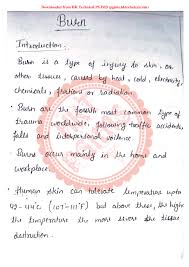 Burn
Introduction:
• Burn is a type of injury to skin, or
other tissues, caused by heat, cold, electricity,
chemicals, frictions or radiation
• Burn are the fourth most common type of
trauma worldwide, following traffic accidents,
falls and interpersonal violence
• Burns occurs mainly in the home and
workplace.
• Human skin can tolerate temperature upto
42-44°C (107-111°F) but above these, the higher
the temperature the more severe the tissue
destruction